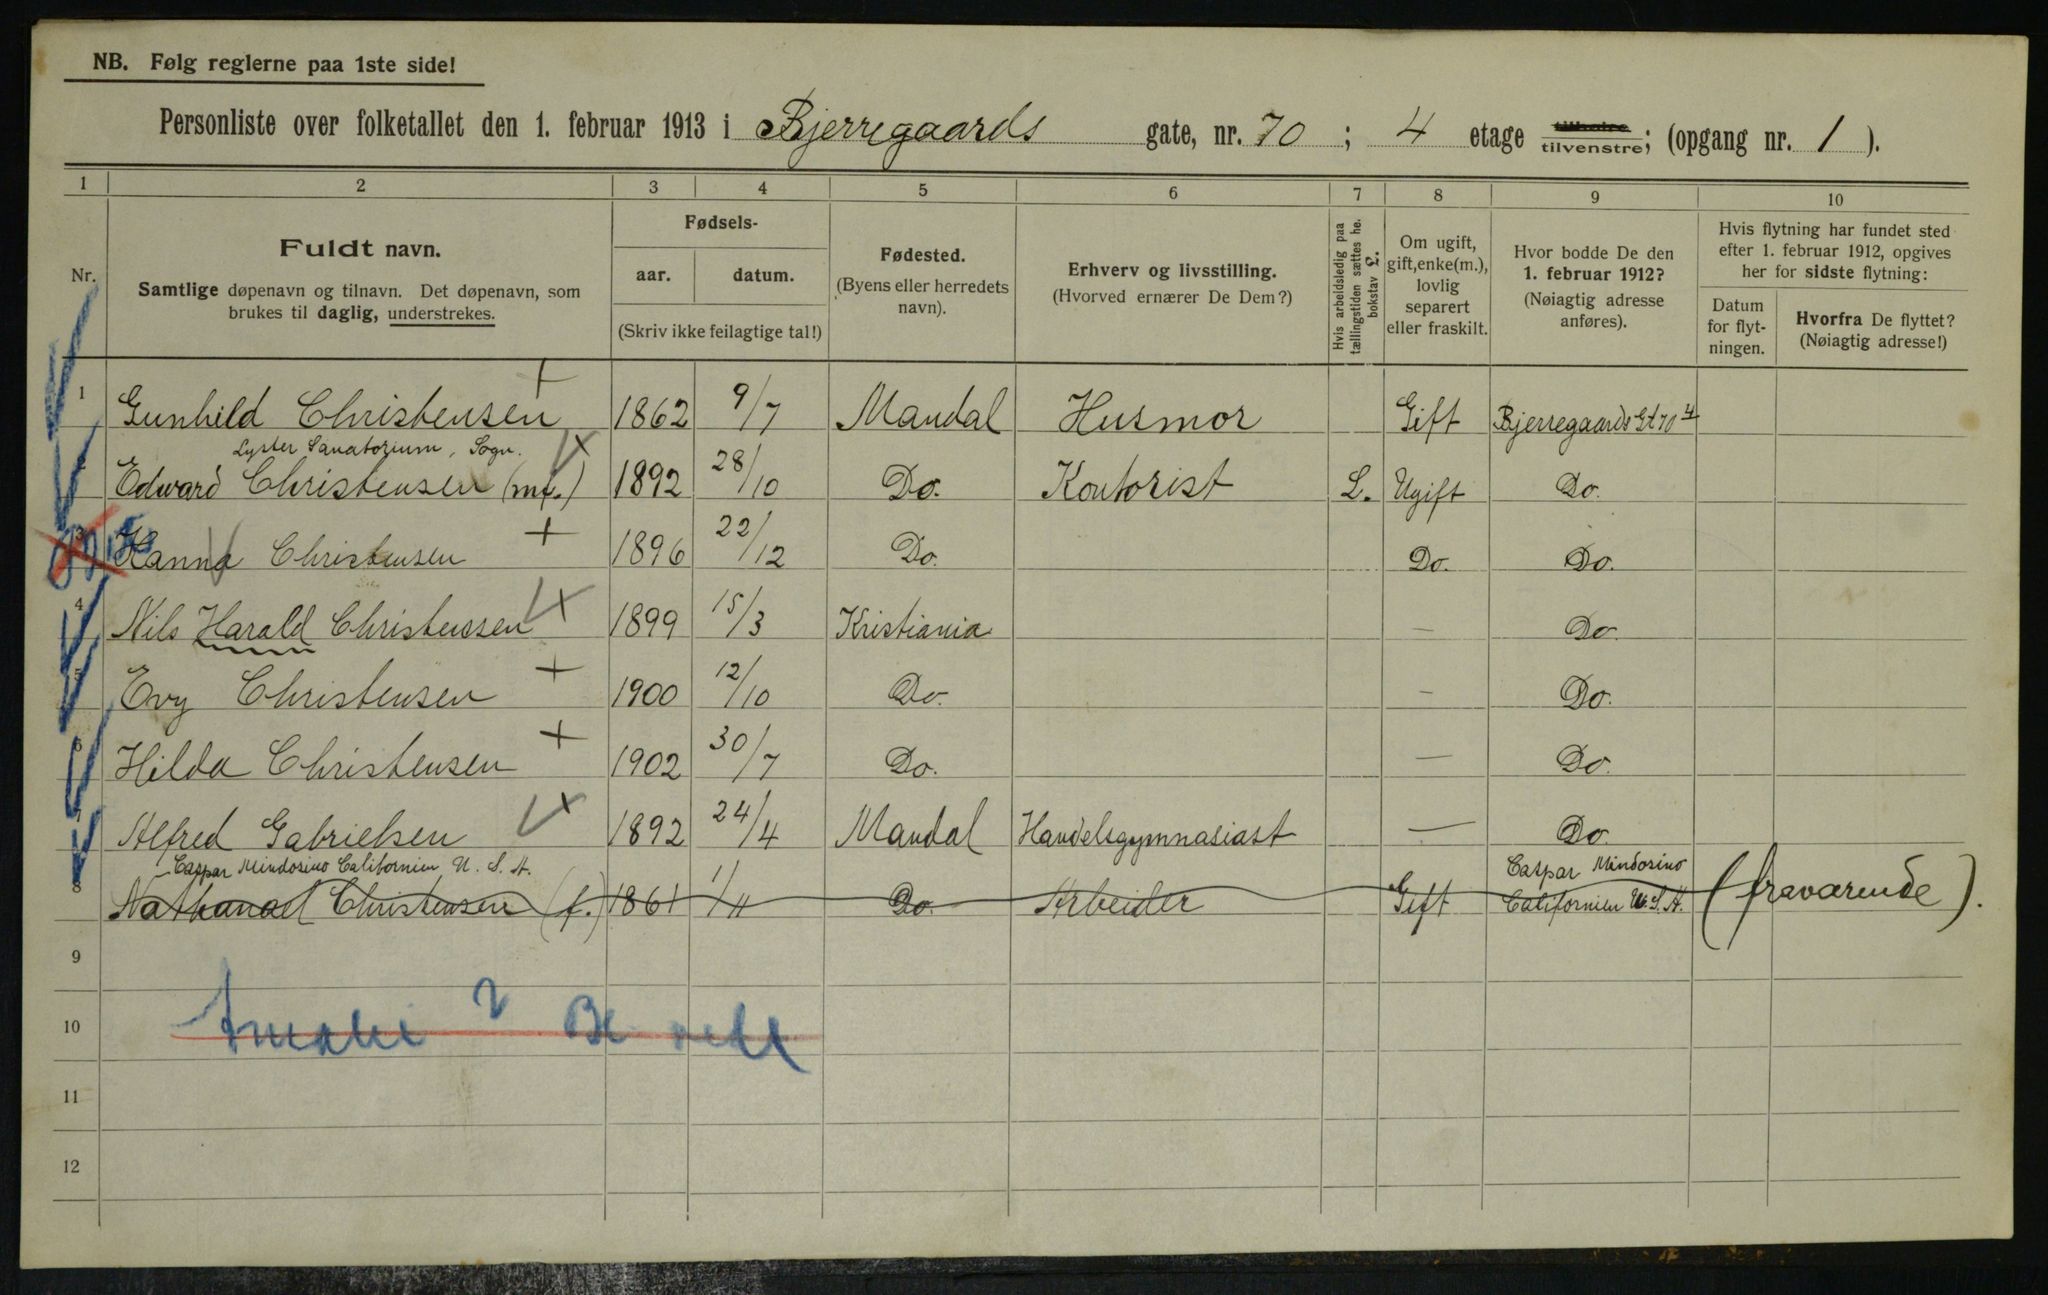 NB. Følg reglerne paa 1ste side!
Personliste over folketallet den 1. februar 1913 i Bjerregaards gate, nr. 70 ; 4 etage tilvenstre; (opgang nr. 1 ).
1 2 3 4 5 6 7 8 9 10
Nr.
Fuldt navn.
Samtlige døpenavn og tilnavn. Det døpenavn, som
brukes til daglig, understrekes.
Fødsels-
aar. datum.
(Skriv ikke feilagtige tal!)
Fødested.
(Byens eller herredets
navn).
Erhverv og livsstilling.
(Hvorved ernærer De Dem?)
Hvis arbeidsledig paa
tællingstiden sættes he.
bokstav L.
Om ugift,
gift, enke(m.),
lovlig
separert
eller fraskilt.
Hvor bodde De den
1. februar 1912?
(Nøiagtig adresse
anføres).
Hvis flytning har fundet sted
efter 1. februar 1912, opgives
her for sidste flytning:
Datum
for flyt-
ningen.
Hvorfra De flyttet?
(Nøiagtig adresse!)
1 Gunhild Christensen + 1862 9/7 Mandal Husmor Gift Bjerregaards Gt 70 4
Lyster Sanatorium, Sogn.
2 Edward Christensen (mf.) 1892 28/10 Do. Kontorist L. Ugift Do.
3 Hanna Christensen + 1896 22/12 Do. Do. Do.
4 Nils Harald Christensen 1899 15/3 Kristiania — Do.
5 Evy Christensen + 1900 12/10 Do. — Do.
6 Hilda Christensen + 1902 30/7 Do. — Do.
7 Alfred Gabrielsen 1892 24/4 Mandal Handelsgymnasiast — Do.
Caspar Mindosino Californien U. S. A. Caspar Mindosino
8 Nathanael Christensen (f.) 1861 1/11 Do. Arbeider Gift Californien U.S.A. (fraværende).
9
10 Amalie
11
12